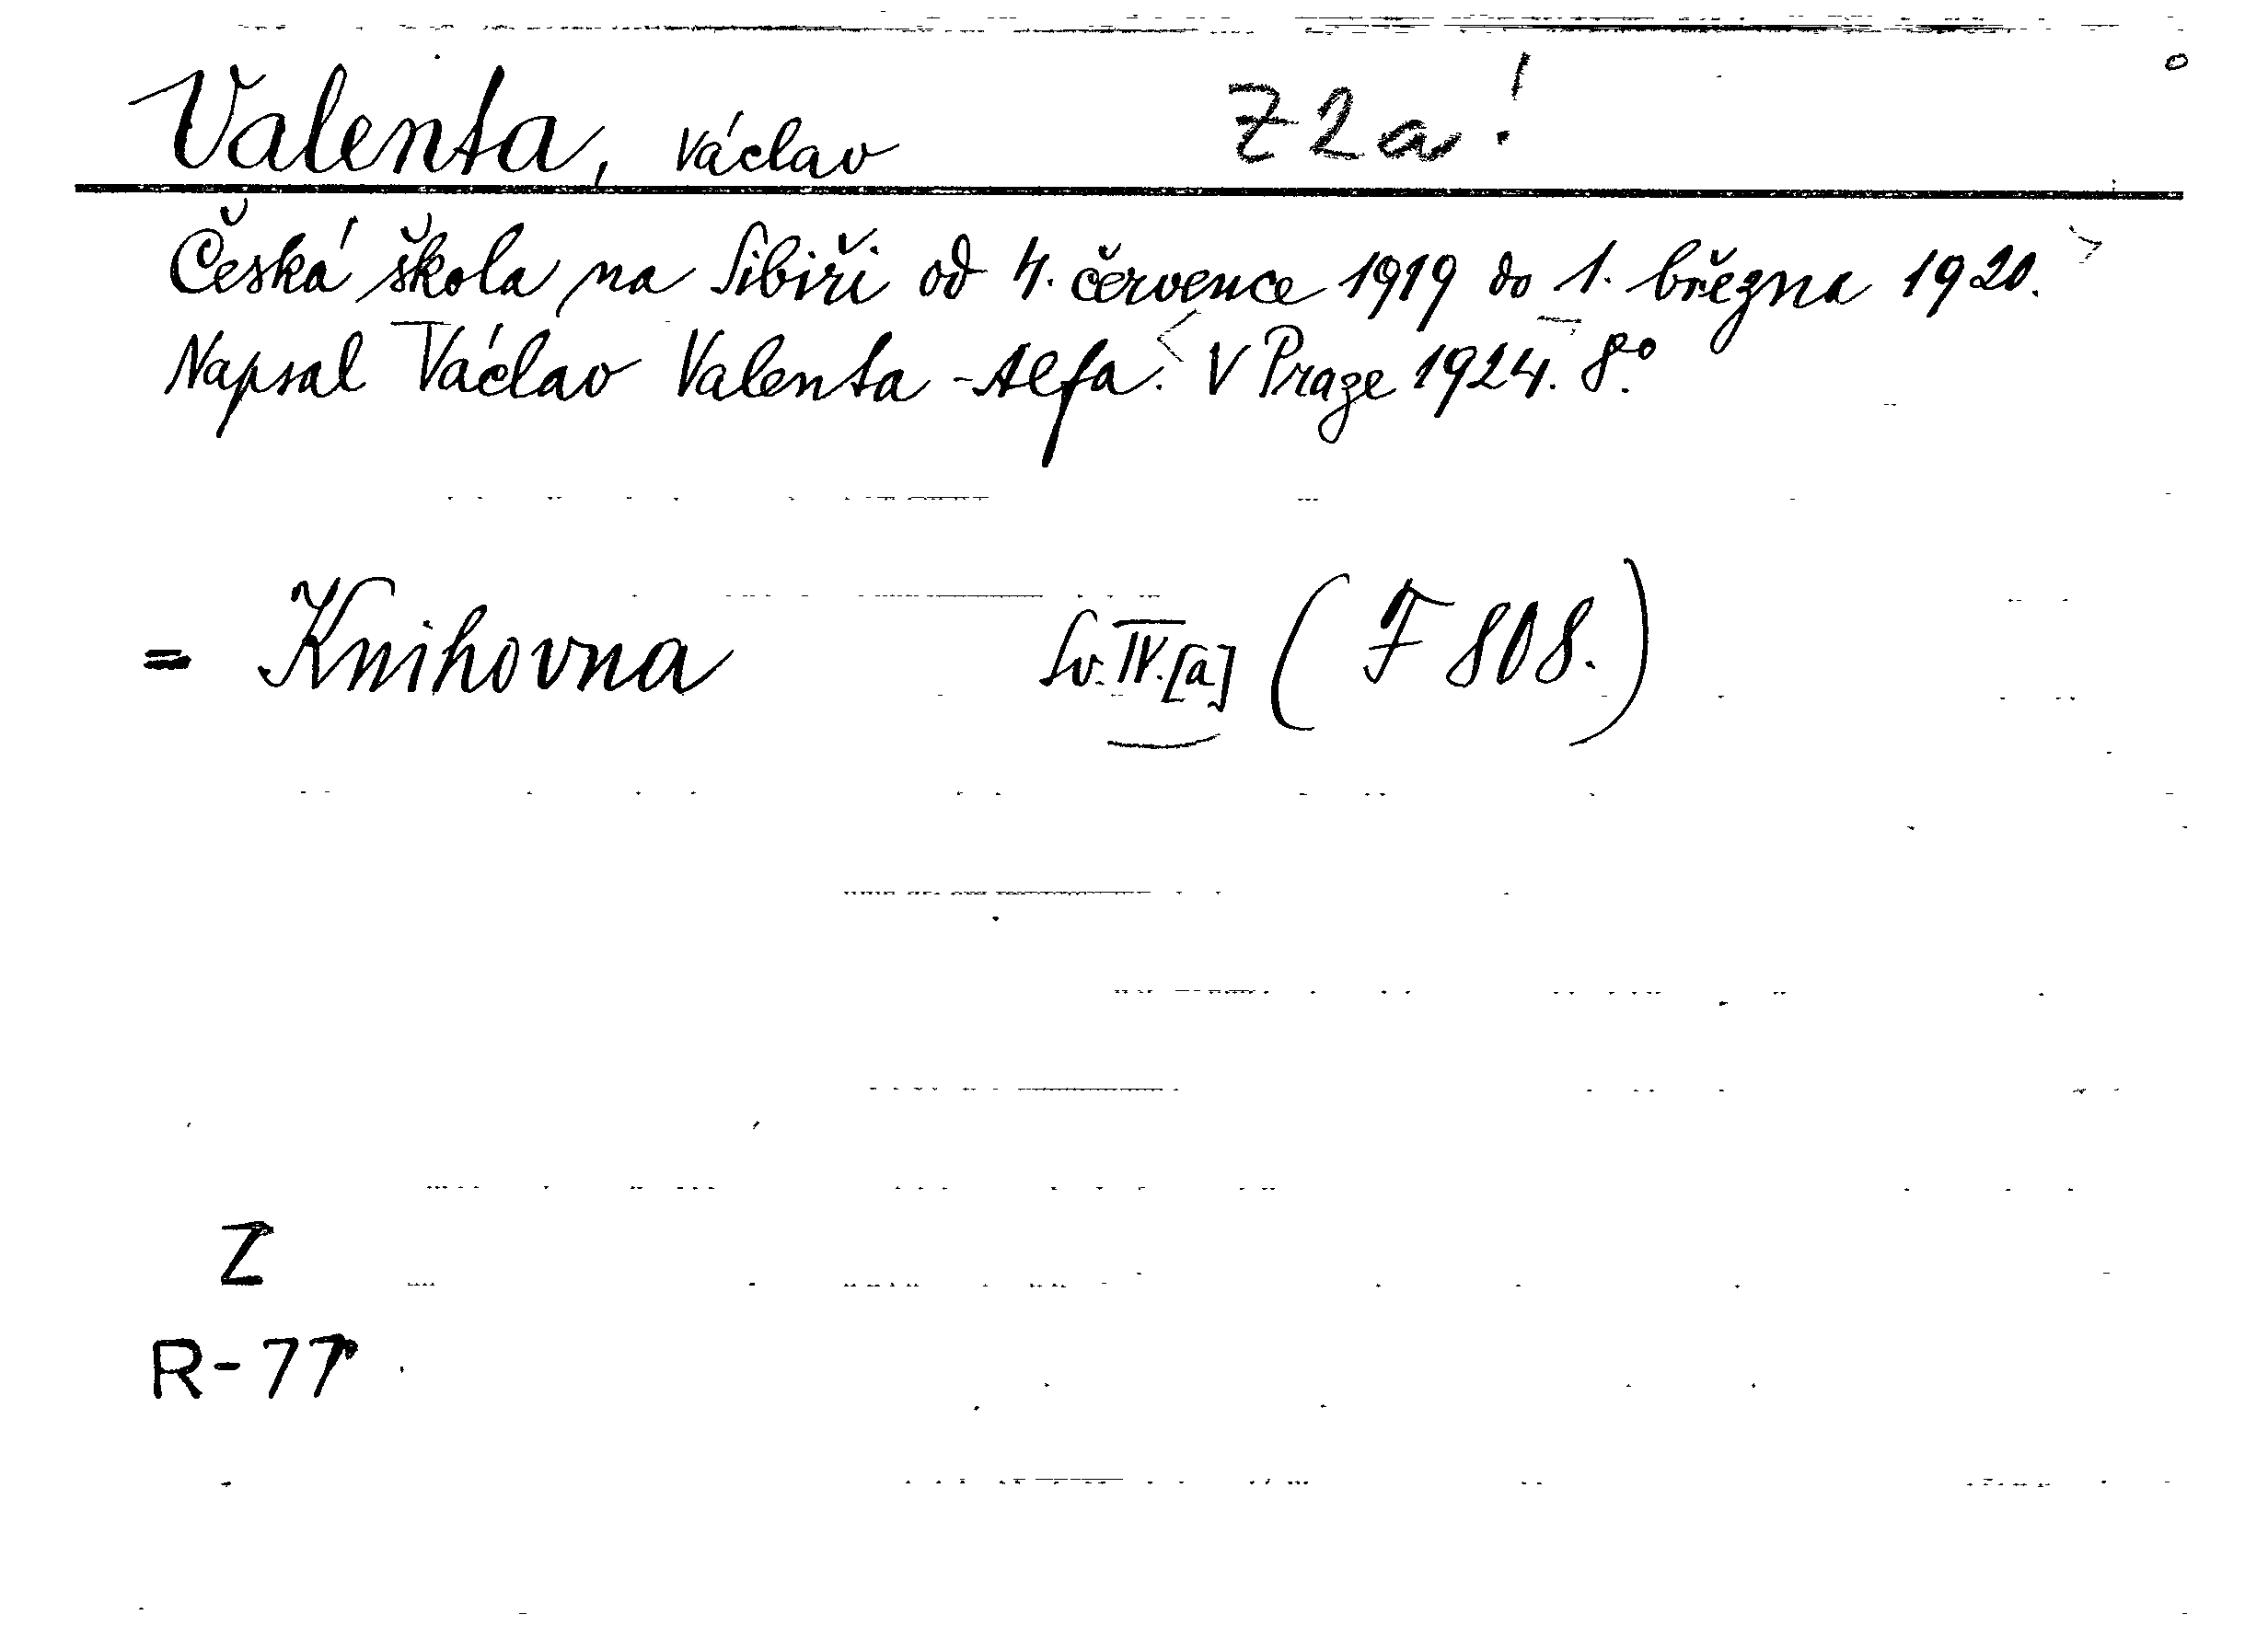 Valenta, Václav Z2a!
Česká škola na Sibiři od 4. července 1919 do 1. března 1920.
Napsal Václav Valenta-Alfa. V Praze 1924. 8.°
= Knihovna Sv. IV. [a] (F 808.)
Z
R-77